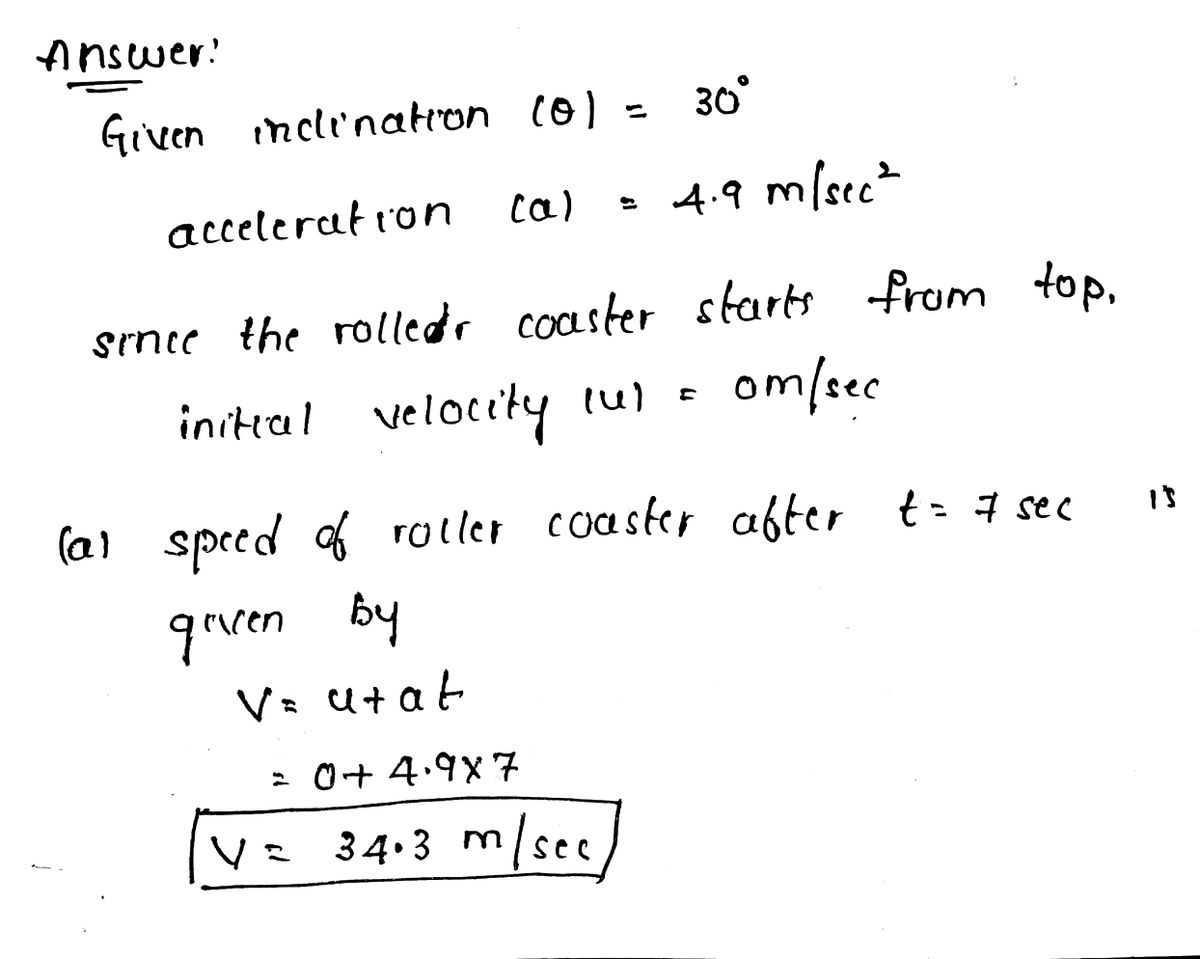 Answer:
Given inclination (θ) = 30°
acceleration (a) = 4.9 m/sec²
since the rolledr coaster starts from top.
initial velocity (u) = 0m/sec
(a) speed of roller coaster after t = 7 sec is
given by
V = u + at
= 0 + 4.9 x 7
V = 34.3 m/sec